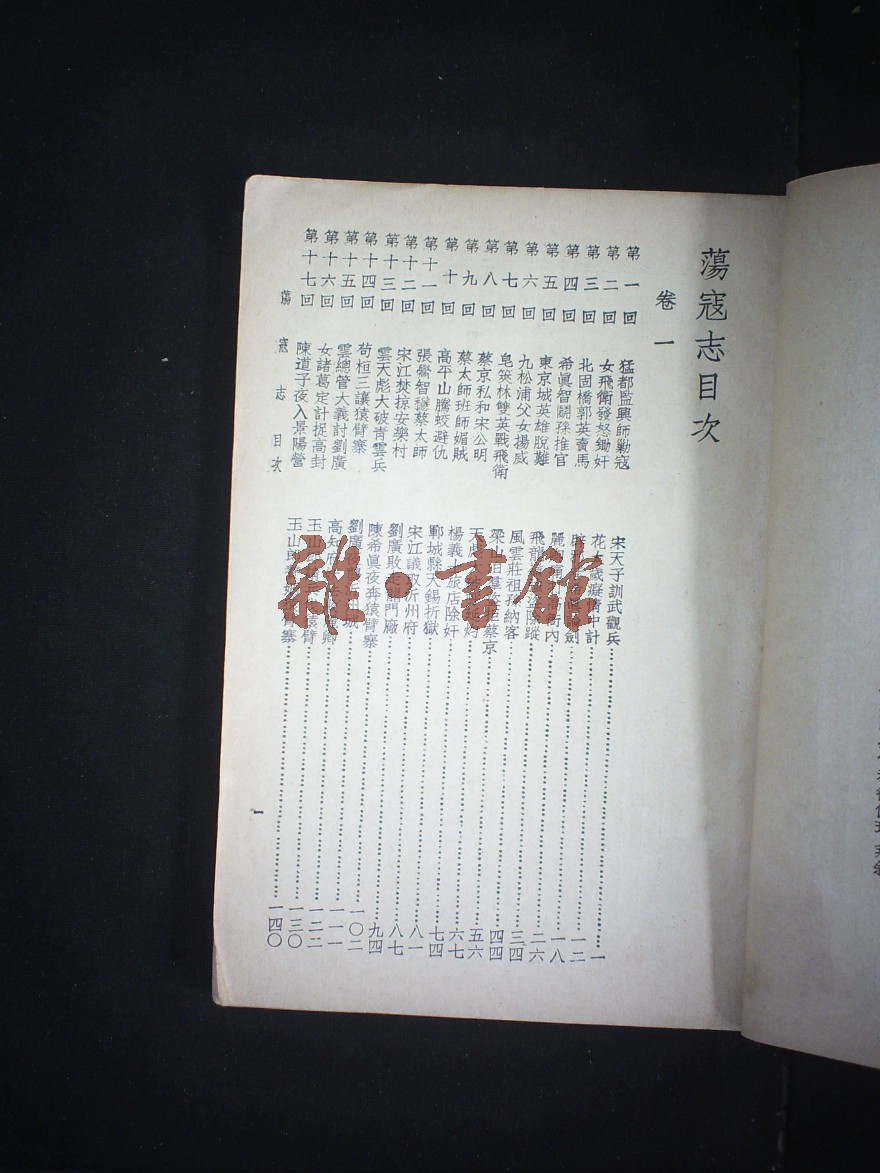 蕩寇志目次
卷一
第一回 猛都監興師勦寇 宋天子訓武觀兵 一
第二回 女飛衛發怒鋤奸 花太歲癡情中計 一二
第三回 北固橋郭英賣馬 一八
第四回 希眞智鬭孫推官 二六
第五回 東京城英雄脫難 三四
第六回 九松浦父女揚威 風雲莊祖孫納客 四四
第七回 皂莢林雙英戰飛衛 五六
第八回 蔡京私和宋公明 六七
第九回 蔡太師班師媚賊 楊義士旅店除奸 七四
第十回 高平山騰蛟避仇 鄆城縣天錫折獄 八一
第十一回 張嚳智穩蔡太師 宋江議取沂州府 八七
第十二回 宋江焚掠安樂村 劉廣敗走龍門廠 九四
第十三回 雲天彪大破青雲兵 陳希眞夜奔猿臂寨 一〇二
第十四回 苟桓三讓猿臂寨 劉廣 一一一
第十五回 雲總管大義討劉廣 高知府 一二二
第十六回 女諸葛定計捉高封 玉山 猿臂 一三〇
第十七回 陳道子夜入景陽營 玉山郎 臂寨 一四〇
蕩寇志 目次
一
雜·書館